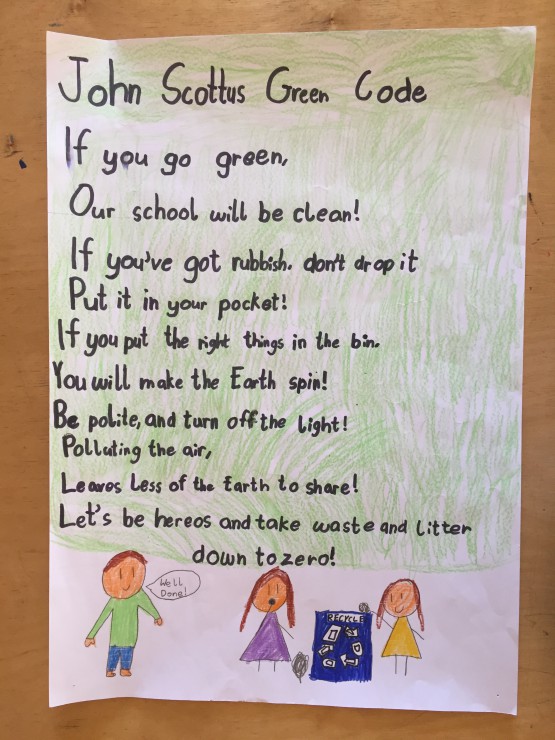 John Scottus Green Code
If you go green,
Our school will be clean!
If you've got rubbish. don't drop it
Put it in your pocket!
If you put the right things in the bin.
You will make the Earth spin!
Be polite, and turn off the light!
Polluting the air,
Leaves Less of the Earth to share!
Let's be hereos and take waste and litter
down to zero!
Well
Done!
RECYCLE